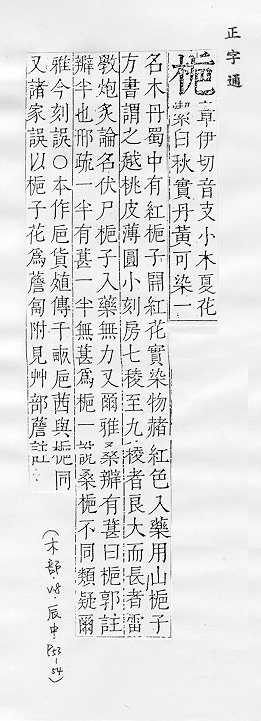 正字通
梔 章伊切音支小木夏花
潔白秋實丹黃可染一
名木丹蜀中有紅梔子開紅花實染物赭紅色入藥用山梔子
方書謂之越桃皮薄圓小刻房七稜至九稜者良大而長者雷
斆炮炙論名伏尸梔子入藥無力又爾雅桑辦有葚曰梔郭註
辦半也邢疏一半有葚一半無葚爲梔一說桑梔不同類疑爾
雅今刻誤〇本作巵貨殖傳千畞巵茜與梔同
又諸家誤以梔子花爲薝蔔附見艸部薝註
(木部,V8,辰中,P53-54)